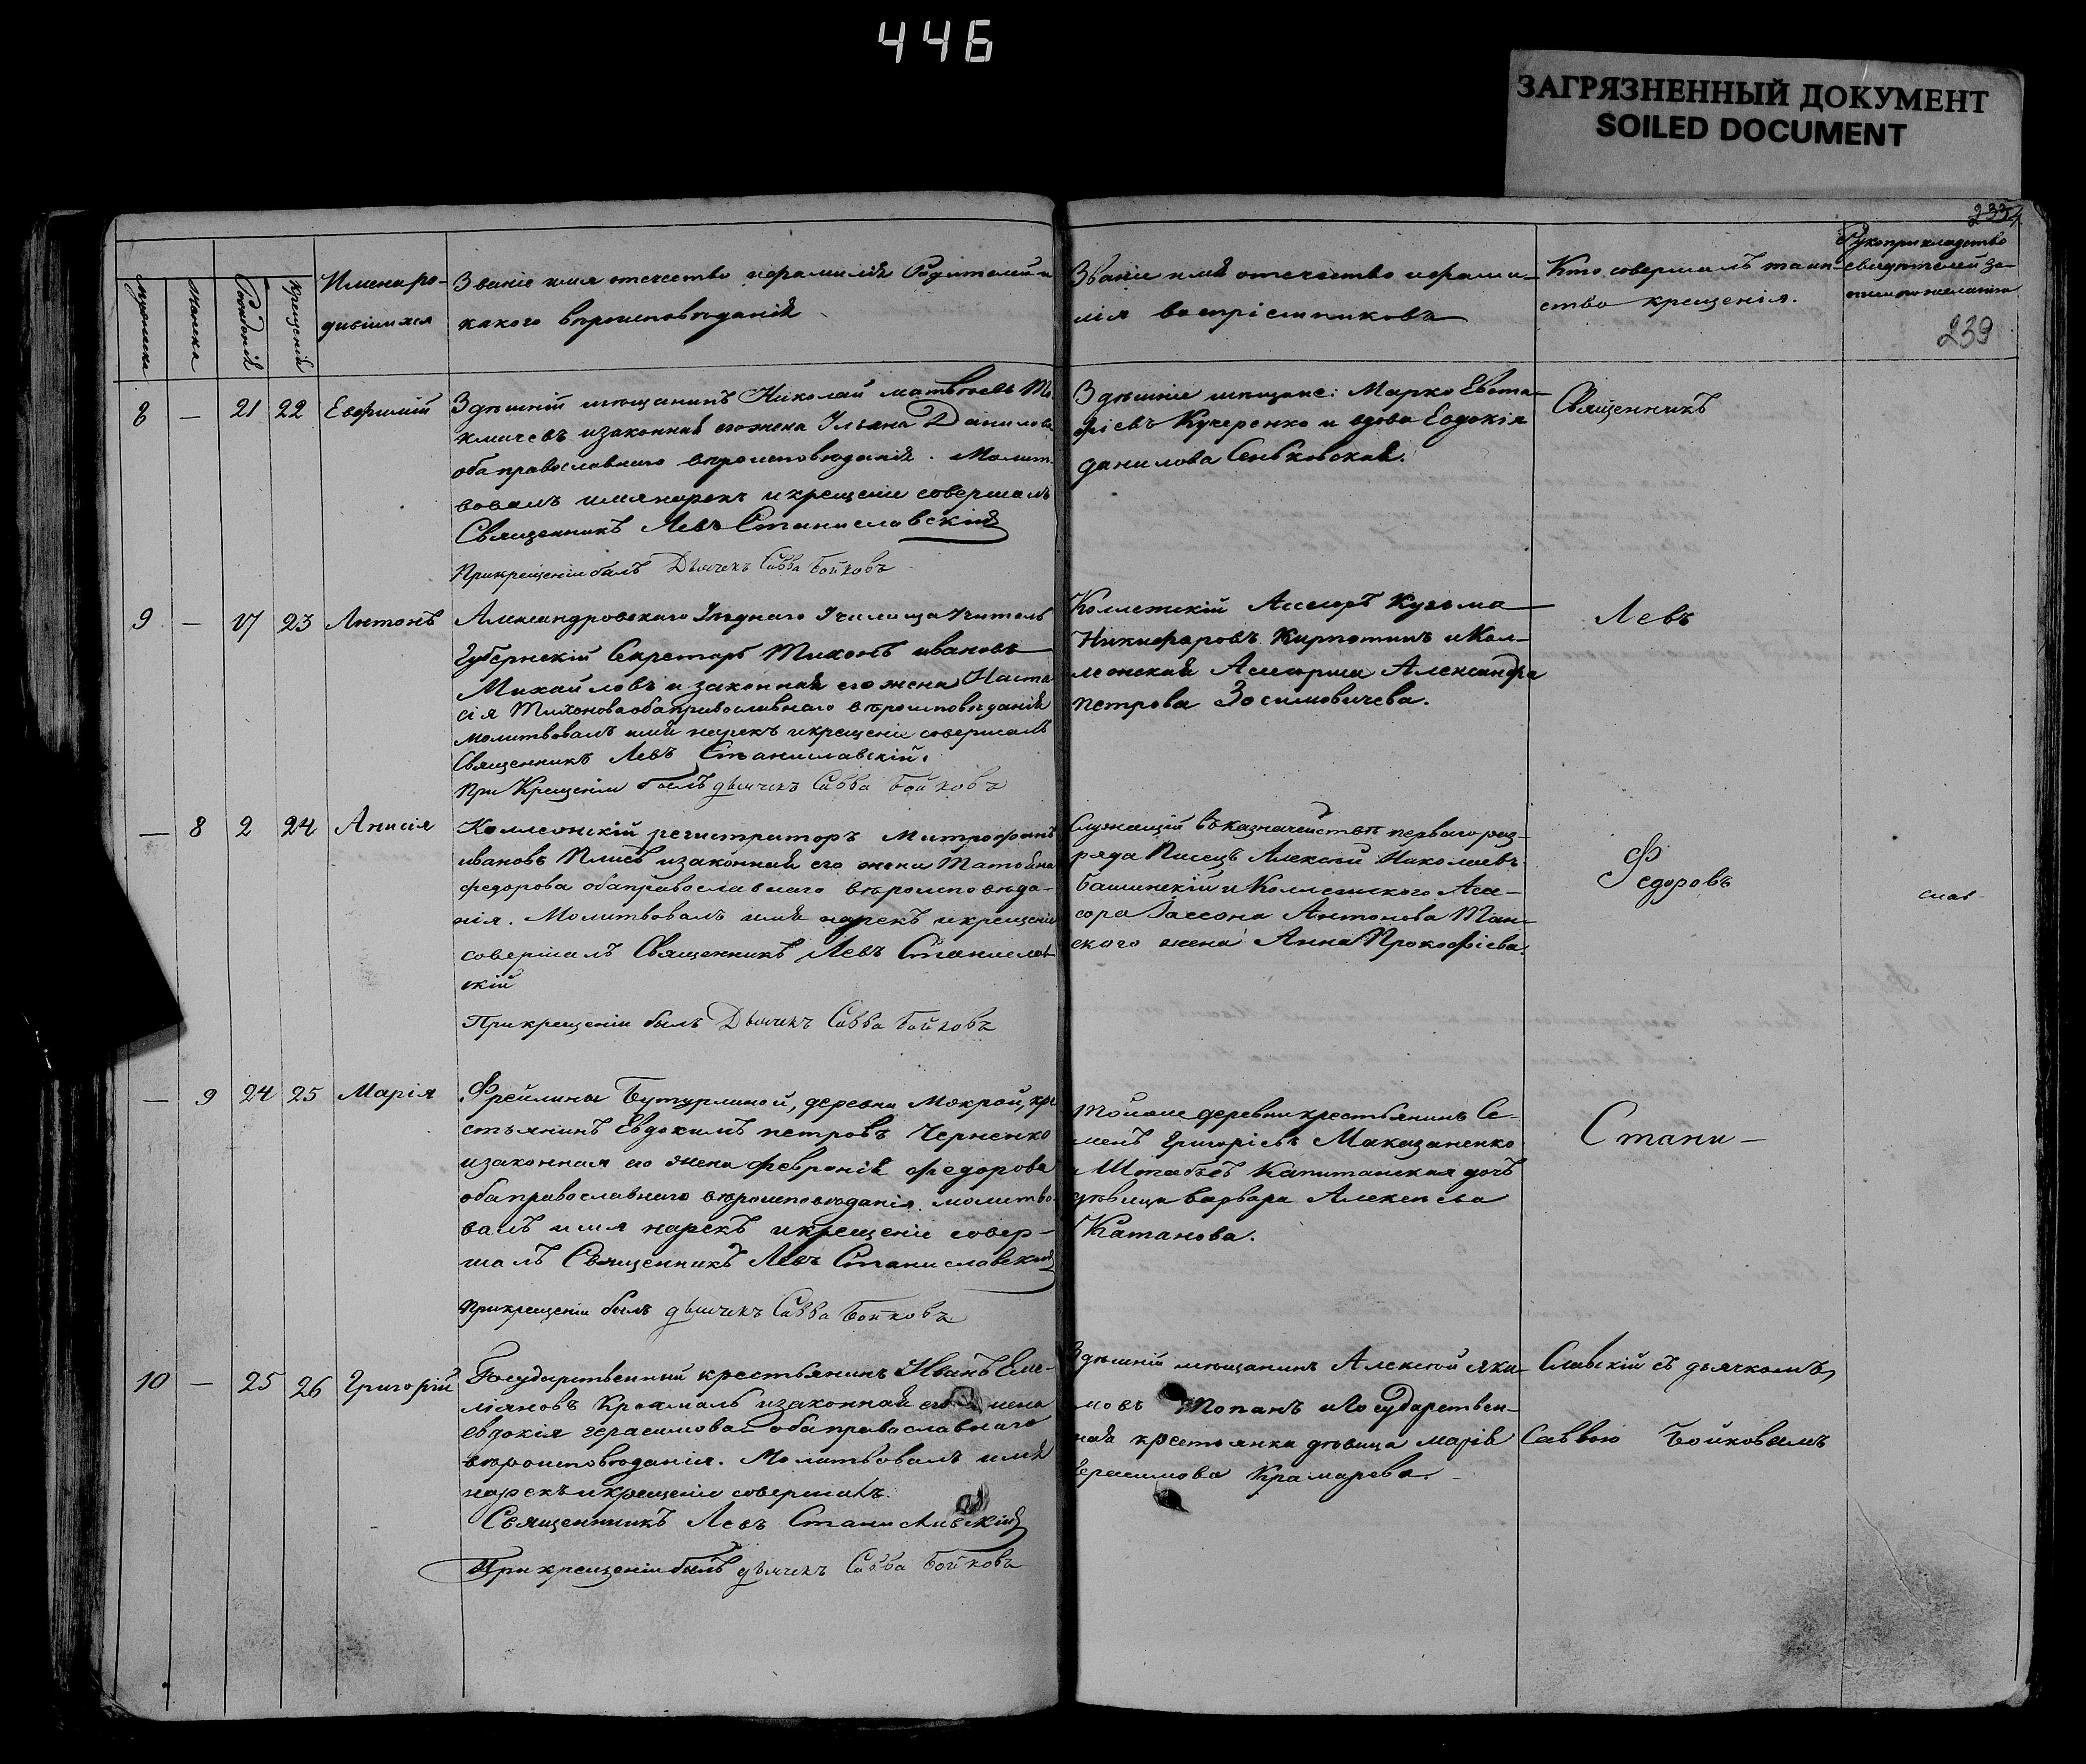 446
ЗАГРЯЗНЕННЫЙ ДОКУМЕНТ
SOILED DOCUMENT
239
мужеска
женска
Рожденія
крещенія
Имена ро-
дившихся
Званіе имя отечество ифамилія Родителей и
какого вѣроисповѣданія
Званіе имя отечество ифами-
лія воспріемниковъ
Кто совершалъ таин-
ство крещенія.
Рукоприкладство
свидѣтелей за-
писи по желанію
8 — 21 22 Евфимій
Здѣшній мѣщанинъ Николай матвѣевъ
изаконная его жена Ульяна Данилова
оба православнаго вѣроисповѣданія. Молит-
вовалъ имя нарекъ икрещеніе совершалъ
Священникъ Левъ Станиславскій
При крещеніи былъ Дьячекъ Савва Бойковъ
Здѣшніе мѣщане: Марко Евста-
фіевъ Кучеренко и вдова Евдокія
данилова Сеньковская.
Священникъ
9 — 17 23 Антонъ
Александровскаго Уѣзднаго Училища Учитель
Губернскій Секретарь Тихонъ ивановъ
Михайловъ и законная его жена Наста
сія Тихонова оба православнаго вѣроисповѣданія
молитвовалъ имя нарекъ икрещеніе совершалъ
Священникъ Левъ Станиславскій.
При Крещеніи былъ дьячекъ Савва Бойковъ
Коллежскій Ассесоръ Кузьма
Никифоровъ Кирпотинъ и Кол-
лежская Ассесорша Александра
петрова Зосимовичева.
Левъ
— 8 2 24 Анисія
Коллежскій регистраторъ Митрофанъ
ивановъ Плисъ изаконная его жена Татьяна
федорова оба православнаго вѣроисповѣда-
нія. Молитвовалъ имя нарекъ икрещеніе
совершалъ Священникъ Левъ Станислав
скій
При крещеніи былъ Дьячекъ Савва Бойковъ
Служащій въ казначействѣ перваго раз-
ряда Писецъ Алексѣй Николаевъ
Башинскій и Коллежскаго Асе-
сора Антонова Тан-
скаго жена Анна Прокофіева.
Федоровъ
слав-
— 9 24 25 Марія
Фрейлины Бутурлиной, деревни Мокрой, кре
стьянинъ Евдокимъ петровъ Черненко
изаконная его жена февронія федорова
оба православнаго вѣроисповѣданія. молитво-
валъ имя нарекъ икрещеніе совер-
шалъ Священникъ Левъ Станиславскій
При крещеніи былъ дьячекъ Савва Бойковъ
Тойже деревни крестьянинъ Се-
менъ Григоріевъ Маказаненко
и Штабсъ Капитанская дочь
дѣвица варвара Алексѣева
Катанова.
Стани-
10 — 25 26 Григорій
Государственный крестьянинъ Иванъ Еме-
ліяновъ изаконная его жена
евдокія герасимова оба православнаго
вѣроисповѣданія. Молитвовалъ имя
нарекъ икрещеніе совершалъ.
Священникъ Левъ Станиславскій
При крещеніи былъ дьячекъ Савва Бойковъ
Здѣшній мѣщанинъ Алексѣй яки-
мовъ Топанъ и Государствен-
ная крестьянка дѣвица марія
герасимова Крамарева.
Славскій съ дьячкомъ
Саввою Бойковымъ